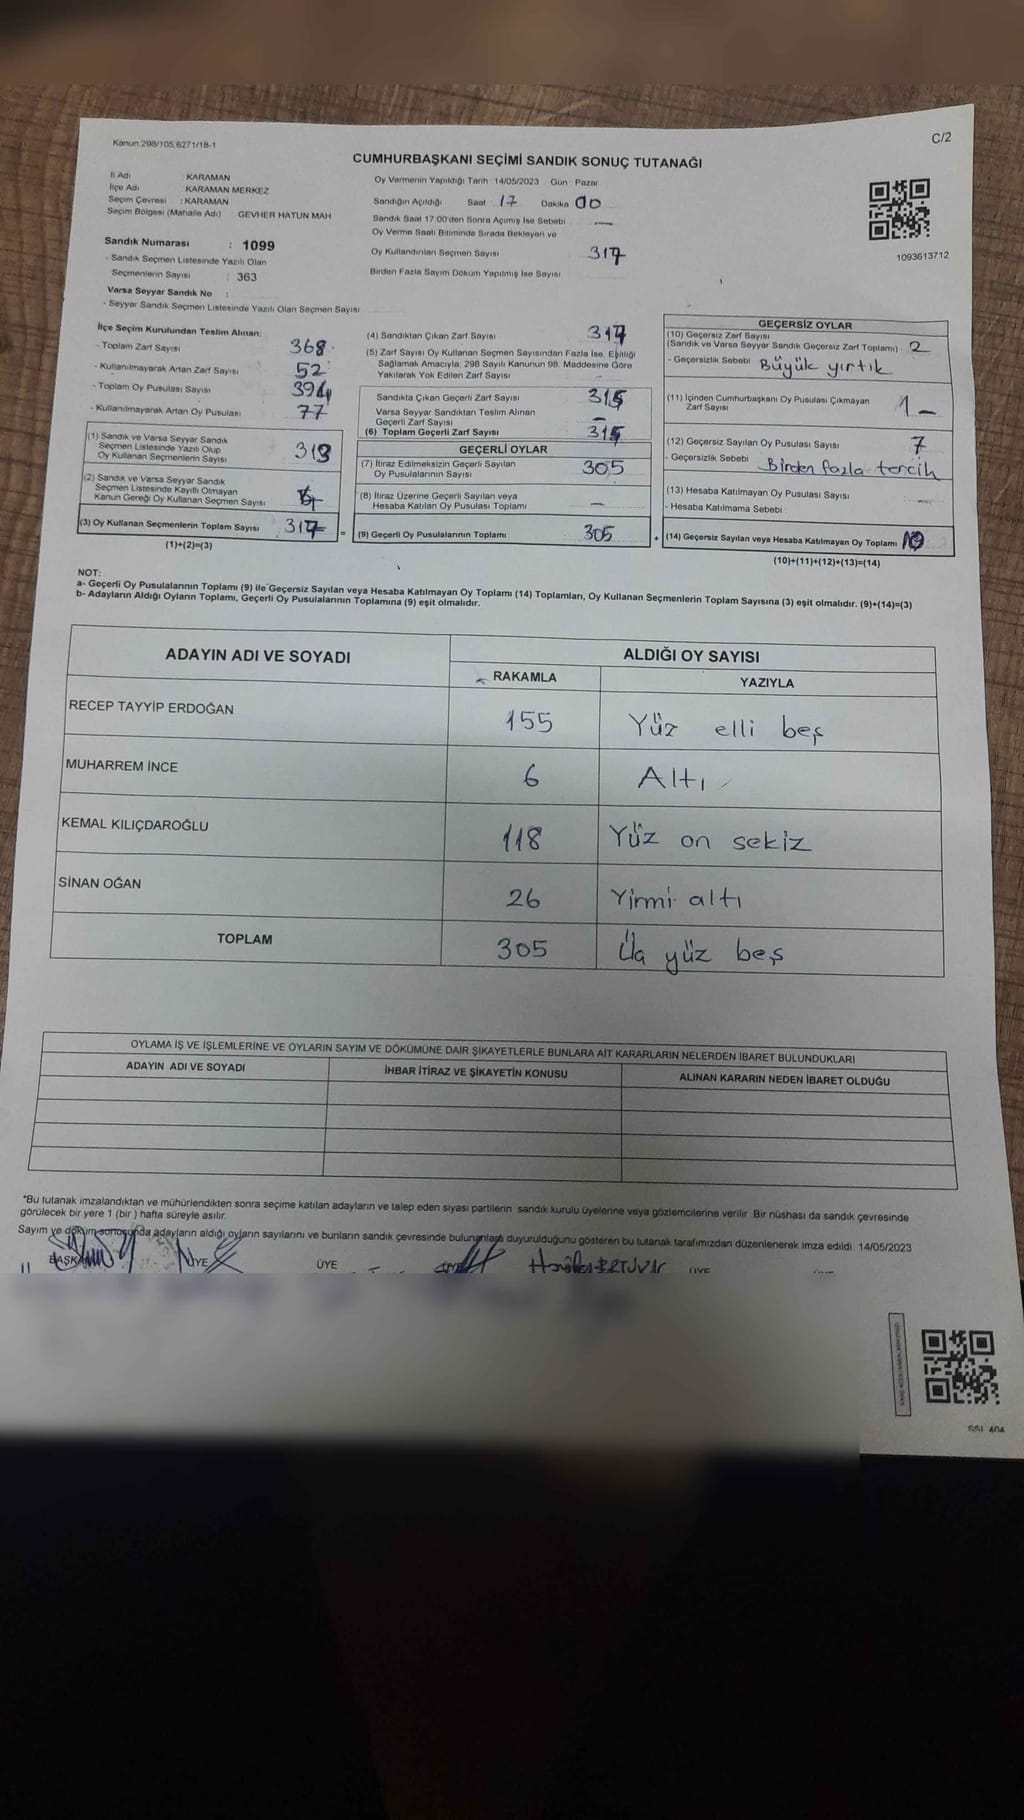 Kanun:298/105,6271/18-1
C/2
CUMHURBAŞKANI SEÇİMİ SANDIK SONUÇ TUTANAĞI
İl Adı KARAMAN
İlçe Adı KARAMAN MERKEZ
Seçim Çevresi : KARAMAN
Seçim Bölgesi (Mahalle Adı) GEVHER HATUN MAH
Sandık Numarası : 1099
- Sandık Seçmen Listesinde Yazılı Olan
Seçmenlerin Sayısı : 363
Varsa Seyyar Sandık No :
- Seyyar Sandık Seçmen Listesinde Yazılı Olan Seçmen Sayısı
Oy Vermenin Yapıldığı Tarih 14/05/2023 Gün : Pazar
Sandığın Açıldığı Saat 17 Dakika 00
Sandık Saat 17.00'den Sonra Açımış İse Sebebi —
Oy Verme Saati Bitiminde Sırada Bekleyen ve
Oy Kullandırılan Seçmen Sayısı 317
Birden Fazla Sayım Döküm Yapılmış İse Sayısı
1093613712
İlçe Seçim Kurulundan Teslim Alınan;
- Toplam Zarf Sayısı 368
- Kullanılmayarak Artan Zarf Sayısı 52
- Toplam Oy Pusulası Sayısı 394
- Kullanılmayarak Artan Oy Pusulası 77
(1) Sandık ve Varsa Seyyar Sandık
Seçmen Listesinde Yazılı Olup
Oy Kullanan Seçmenlerin Sayısı 313
(2) Sandık ve Varsa Seyyar Sandık
Seçmen Listesinde Kayıtlı Olmayan
Kanun Gereği Oy Kullanan Seçmen Sayısı
(3) Oy Kullanan Seçmenlerin Toplam Sayısı 317 =
(1)+(2)=(3)
(4) Sandıktan Çıkan Zarf Sayısı 317
(5) Zarf Sayısı Oy Kullanan Seçmen Sayısından Fazla İse, Eşitliği
Sağlamak Amacıyla, 298 Sayılı Kanunun 98. Maddesine Göre
Yakılarak Yok Edilen Zarf Sayısı —
Sandıkta Çıkan Geçerli Zarf Sayısı 315
Varsa Seyyar Sandıktan Teslim Alınan
Geçerli Zarf Sayısı —
(6) Toplam Geçerli Zarf Sayısı 315
GEÇERLİ OYLAR
(7) İtiraz Edilmeksizin Geçerli Sayılan
Oy Pusulasının Sayısı 305
(8) İtiraz Üzerine Geçerli Sayılan veya
Hesaba Katılan Oy Pusulası Toplamı —
(9) Geçerli Oy Pusulalarının Toplamı 305 +
GEÇERSİZ OYLAR
(10) Geçersiz Zarf Sayısı
(Sandık ve Varsa Seyyar Sandık Geçersiz Zarf Toplamı) 2
- Geçersizlik Sebebi Büyük yırtık
(11) İçinden Cumhurbaşkanı Oy Pusulası Çıkmayan
Zarf Sayısı 1 —
(12) Geçersiz Sayılan Oy Pusulası Sayısı 7
- Geçersizlik Sebebi Birden fazla tercih
(13) Hesaba Katılmayan Oy Pusulası Sayısı —
- Hesaba Katılmama Sebebi
(14) Geçersiz Sayılan veya Hesaba Katılmayan Oy Toplamı 10
(10)+(11)+(12)+(13)=(14)
NOT:
a- Geçerli Oy Pusulalarının Toplamı (9) ile Geçersiz Sayılan veya Hesaba Katılmayan Oy Toplamı (14) Toplamları, Oy Kullanan Seçmenlerin Toplam Sayısına (3) eşit olmalıdır. (9)+(14)=(3)
b- Adayların Aldığı Oyların Toplamı, Geçerli Oy Pusulalarının Toplamına (9) eşit olmalıdır.
ADAYIN ADI VE SOYADI
ALDIĞI OY SAYISI
RAKAMLA YAZIYLA
RECEP TAYYİP ERDOĞAN 155 Yüz elli beş
MUHARREM İNCE 6 Altı
KEMAL KILIÇDAROĞLU 118 Yüz on sekiz
SİNAN OĞAN 26 Yirmi altı
TOPLAM 305 yüz beş
OYLAMA İŞ VE İŞLEMLERİNE VE OYLARIN SAYIM VE DÖKÜMÜNE DAİR ŞİKAYETLERLE BUNLARA AİT KARARLARIN NELERDEN İBARET BULUNDUKLARI
ADAYIN ADI VE SOYADI İHBAR İTİRAZ VE ŞİKAYETİN KONUSU ALINAN KARARIN NEDEN İBARET OLDUĞU
*Bu tutanak imzalandıktan ve mühürlendikten sonra seçime katılan adayların ve talep eden siyasi partilerin sandık kurulu üyelerine veya gözlemcilerine verilir. Bir nüshası da sandık çevresinde
görülecek bir yere 1 (bir ) hafta süreyle asılır.
Sayım ve döküm sonucunda adayların aldığı oyların sayılarını ve bunların sandık çevresinde bulunanlara duyurulduğunu gösteren bu tutanak tarafımızdan düzenlenerek imza edildi. 14/05/2023
BAŞKAN ÜYE ÜYE ÜYE ÜYE